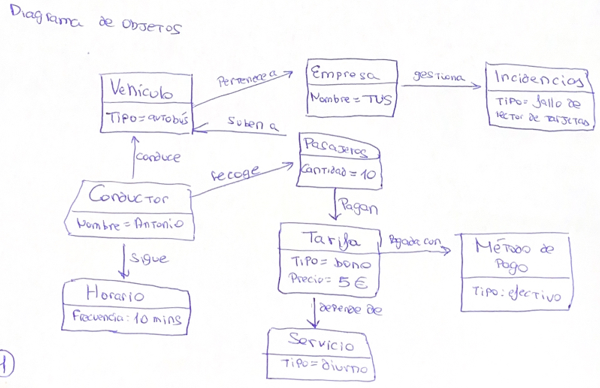 Diagrama de OBJETOS
Vehículo
Tipo=autobús
Pertenece a
Empresa
Nombre=TUS
gestiona
Incidencias
Tipo= fallo de
lector de tarjetas
Suben a
Pasajeros
Cantidad=10
Conduce
recoge
Conductor
Nombre=Antonio
Pagan
Sigue
Tarifa
Tipo= bono
Precio= 5€
Pagada con
Método de
Pago
Tipo: efectivo
Horario
Frecuencia: 10 mins
depende de
Servicio
Tipo=Diurno
1